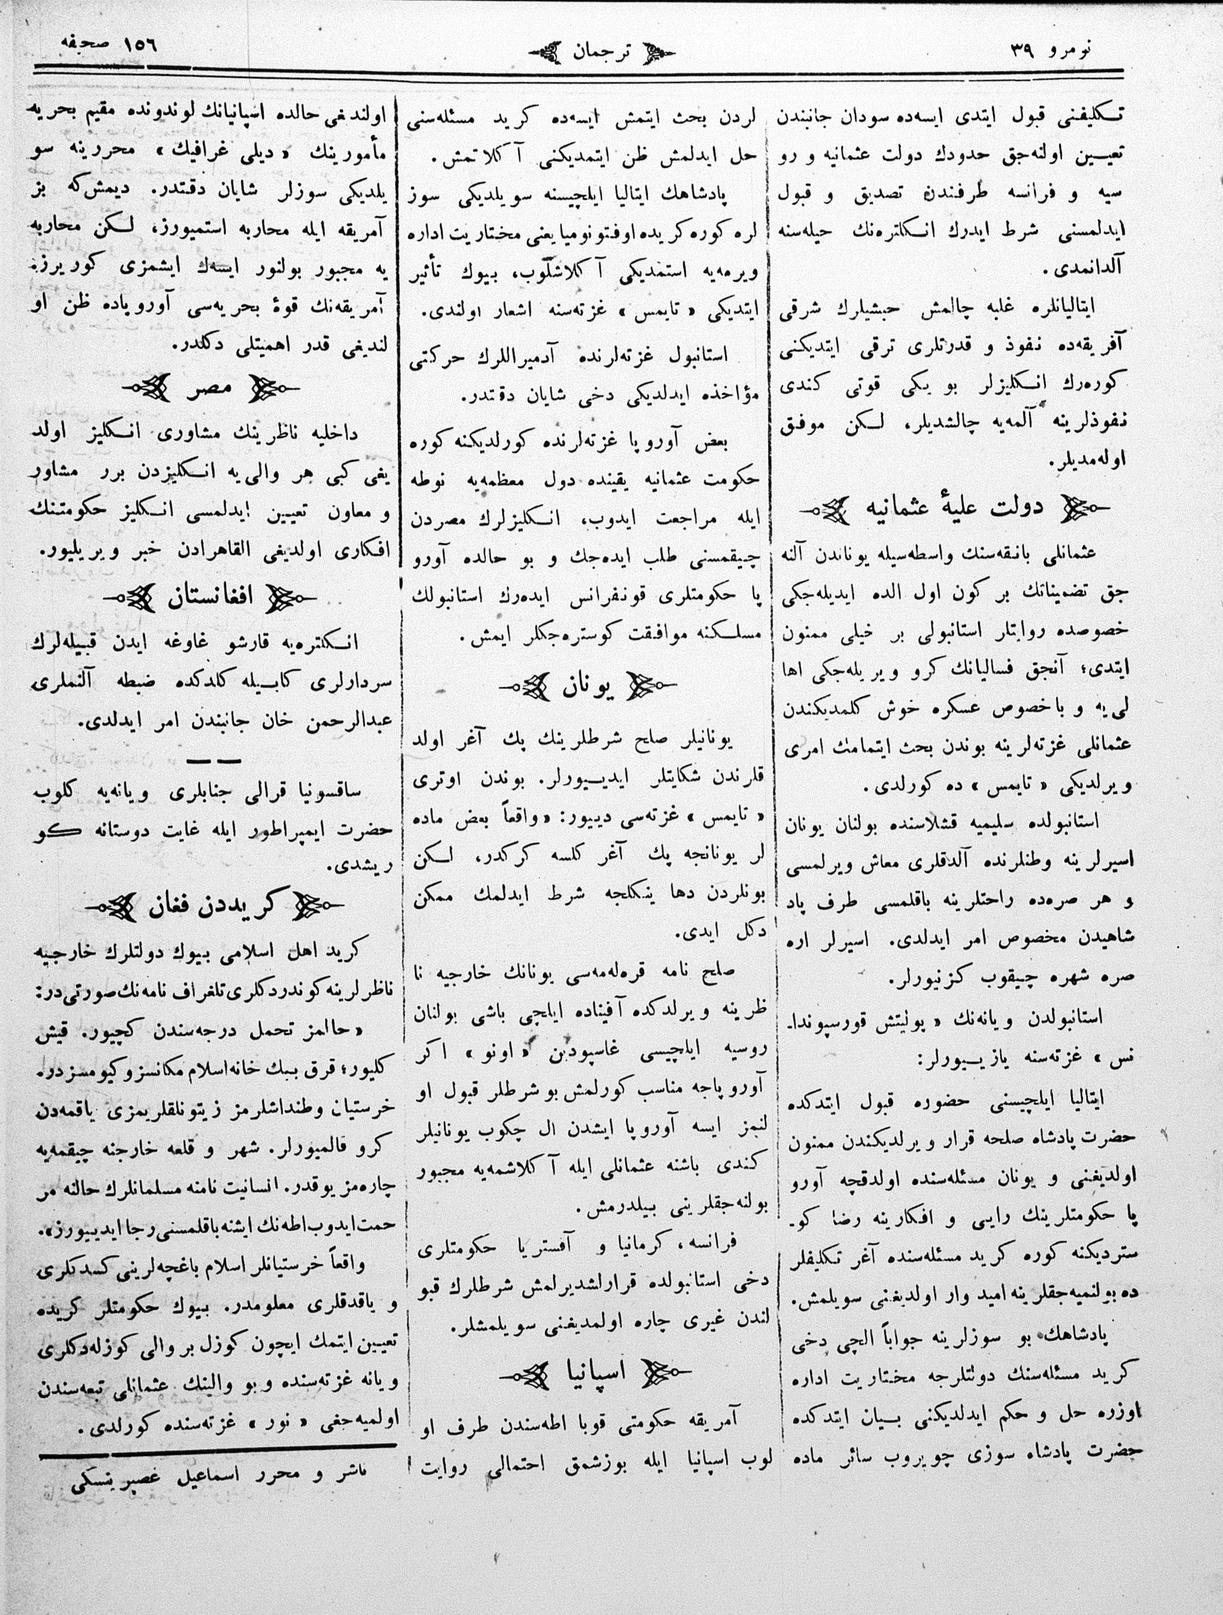 نومرو ٣٩
ترجمان
١٥٦ صحیفه
تـكلیفنی قبول ایتدی ایسه‌ده سودان جانبندن
تعیــین اولنه‌جق حدودك دولت عثمانیه و رو
سیه و فرانسه طرفندن تصدیق و قبول
ایدلمسنی شرط ایدرك انـكلتره‌نك حیله‌سنه
آلدانمدی.
ایتالیانلره غلبه چالمش حبشیلرك شرقی
آفریقه‌ده نفوذ و قدرتلری ترقی ایتدیكنی
كوره‌رك انـكلیزلر بو یكی قوتی كندی
نفوذلرینه آلمه‌یه چالشدیلر، لـكن موفق
اوله‌مدیلر.
دولت علیهٔ عثمانیه
عثمانلی بانقه‌سنك واسطه‌سیله یوناندن آلنه
جق تضمیناتك بر كون اول الده ایدیله‌جكی
خصوصده روایتلر استانبولی بر خیلی ممنون
ایتدی؛ آنجق فسالیانك كرو ویریله‌جكی اها
لی‌یه و باخصوص عسكره خوش كلمدیكندن
عثمانلی غزته‌لرینه بوندن بحث ایتمامك امری
ویرلدیكی «تایمس» ده كورلدی.
استانبولده سلیمیه قشلاسنده بولنان یونان
اسیرلرینه وطنلرنده آلدقلری معاش ویرلمسی
و هر صره‌ده راحتلرینه باقلمسی طرف پاد
شاهیدن مخصوص امر ایدلدی. اسیرلر اره
صره شهره چیقوب كزنیورلر.
استانبولدن ویانه‌نك «پولیتش قورسپوندا-
نس» غزته‌سنه یازیــیورلر:
ایتالیا ایلچیسنی حضوره قبول ایتدكده
حضرت پادشاه صلحه قرار ویرلدیكندن ممنون
اولدیغنی و یونان مسئله‌سنده اولدقچه آورو
پا حكومتلرینك رایی و افكارینه رضا كو-
ستردیكنه كوره كرید مسئله‌سنده آغر تـكلیفلر
ده بولنمیه‌جقلرینه امیدوار اولدیغنی سویلمش.
پادشاهك بو سوزلرینه جواباً الچی دخی
كرید مسئله‌سنك دولتلرجه مختاریت اداره
اوزره حل و حكم ایدلدیكنی بــیان ایتدكده
حضرت پادشاه سوزی چویروب سائر ماده
لردن بحث ایتمش ایسه‌ده كرید مسئله‌سنی
حل ایدلمش ظن ایتمدیكنی آكلاتمش.
پادشاهك ایتالیا ایلچیسنه سویلدیكی سوز
لره كوره كریده اوفتونومیا یعنی مختاریت اداره
ویرمه‌یه استمدیكی آكلاشلوب، بیوك تأثیر
ایتدیكی «تایمس» غزته‌سنه اشعار اولندی.
استانبول غزته‌لرنده آدمیراللرك حركتی
مؤاخذه ایدلدیكی دخی شایان دقتدر.
بعض آوروپا غزته‌لرنده كورلدیكنه كوره
حكومت عثمانیه یقینده دول معظمه‌یه نوطه
ایله مراجعت ایدوب، انـكلیزلرك مصردن
چیقمسنی طلب ایده‌جك و بو حالده آورو
پا حكومتلری قونفرانس ایده‌رك استانبولك
مسلـكنه موافقت كوستره‌جكلر ایمش.
یونان
یونانیلر صلح شرطلرینك پك آغر اولد
قلرندن شكایتلر ایدیــیورلر. بوندن اوتری
«تایمس» غزته‌سی دییور: «واقعاً بعض ماده
لر یونانجه پك آغر كلسه كركدر، لـكن
بونلردن دها ینكلجه شرط ایدلمك ممكن
دكل ایدی.
صلح نامه قره‌له‌مه‌سی یونانك خارجیه نا
ظرینه ویرلدكده آفیناده ایلچی باشی بولنان
روسیه ایلچیسی غاسپودین «اونو» اكر
آوروپاجه مناسب كورلمش بو شرطلر قبول او
لنمز ایسه آوروپا ایشدن ال چكوب یونانیلر
كندی باشنه عثمانلی ایله آكلاشمه‌یه مجبور
بولنه‌جقلرینی بیلدرمش.
فرانسه، كرمانیا و آفستریا حكومتلری
دخی استانبولده قرارلشدیرلمش شرطلرك قبو
لندن غیری چاره اولمدیغنی سویلمشلر.
اسپانیا
آمریقه حكومتی قوبا اطه‌سندن طرف او
لوب اسپانیا ایله بوزشمق احتمالی روایت
اولندیغی حالده اسپانیانك لوندونده مقیم بحریه
مأمورینك «دیلی غرافیك» محررینه سو
یلدیكی سوزلر شایان دقتدر. دیمش‌كه بز
آمریقه ایله محاربه استمیورز، لـكن محاربه
یه مجبور بولنور ایسه‌ك ایشمزی كوریرز.
آمریقه‌نك قوهٔ بحریه‌سی آوروپاده ظن او
لندیغی قدر اهمیتلی دكلدر.
مصر
داخلیه ناظرینك مشاوری انـكلیز اولد
یغی كبی هر والی‌یه انـكلیزدن برر مشاور
و معاون تعیین ایدلمسی انـكلیز حكومتنك
افكاری اولدیغی القاهرادن خبر ویریلیور.
افغانستان
انـكلتره‌یه قارشو غاوغه ایدن قبیله‌لرك
سردارلری كابــیله كلدكده ضبطه آلنملری
عبدالرحمن خان جانبندن امر ایدلدی.
ساقسونیا قرالی جنابلری ویانه‌یه كلوب
حضرت ایمپراطور ایله غایت دوستانه كو
ریشدی.
كریددن فغان
كرید اهل اسلامی بیوك دولتلرك خارجیه
ناظرلرینه كوندردكلری تلغراف نامه‌نك صورتی‌در:
«حالمز تحمل درجه‌سندن كچیور. قیش
كلیور؛ قرق بیك خانه اسلام مكانسز و كیومسزدر.
خرستیان وطنداشلرمز زیتونلقلریمزی یاقمه‌دن
كرو قالمیورلر. شهر و قلعه خارجنه چیقمه‌یه
چاره‌مز یوقدر. انسانیت نامنه مسلمانلرك حالنه مر
حمت ایدوب اطه‌نك ایشنه باقلمسنی رجا ایدیـیورز».
واقعاً خرستیانلر اسلام باغچه‌لرینی كسدكلری
و یاقدقلری معلومدر. بیوك حكومتلر كریده
تعیین ایتمك ایچون كوزل بر والی كوزله‌دكلری
ویانه غزته‌سنده و بو والینك عثمانلی تبعه‌سندن
اولمیه‌جغی «نور» غزته‌سنده كورلدی.
ناشر و محرر اسماعیل غصپرینسكی